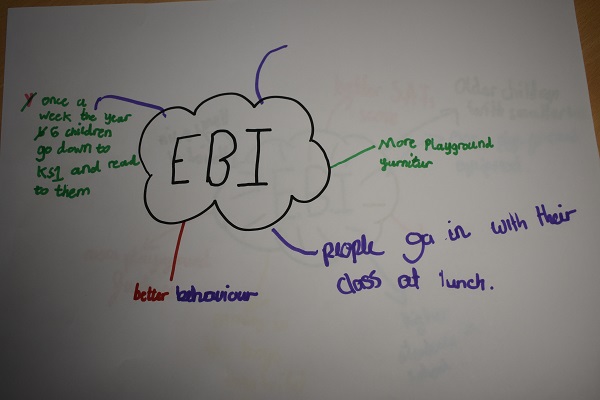 once a
week the year
6 children
go down to
KS1 and read
to them
EBI
More Playground
yurnitur
people go in with their
class at lunch.
better behaviour